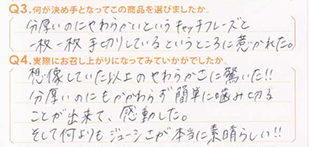 Q3.何が決め手となってこの商品を選びましたか。
分厚いのにやわらかいというキャッチフレーズと
一枚一枚手切りしているというところに惹かれた。
Q4.実際にお召し上がりになってみていかがでしたか。
想像していた以上のやわらかさに驚いた!!
分厚いのにもかかわらず簡単に噛み切る
ことが出来て、感動した。
そして何よりもジューシさが本当に素晴らしい!!